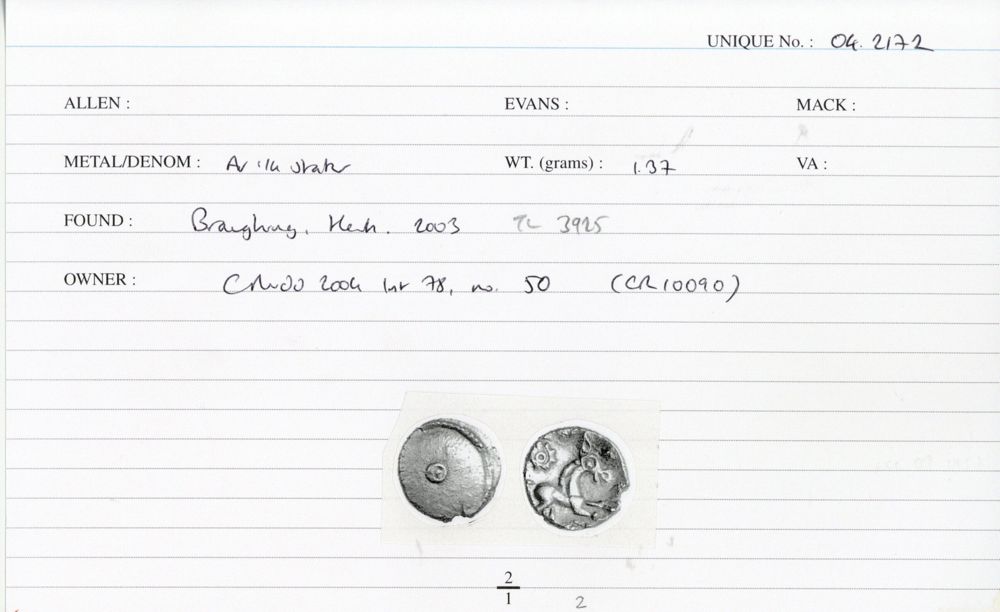 UNIQUE No. : 04. 2172
ALLEN : EVANS : MACK :
METAL/DENOM : Av 1/4 stater WT. (grams) : 1.37 VA :
FOUND : Braughing, Herts. 2003 TL 3925
OWNER : 2004 list 78, no. 50 (CR10090)
2
1 2